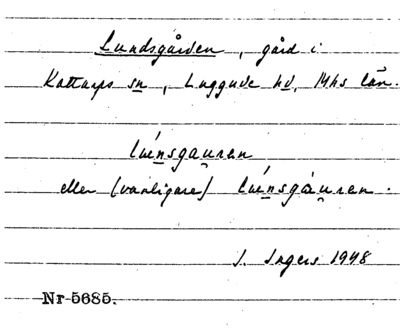 Lundsgården, gård i
Kattarps sn, Luggude hd, Mhs län.
lwénsgau̯ren
eller (vanligare) lwénsgàu̯ren.
I. Ingers 1948
Nr 5685.